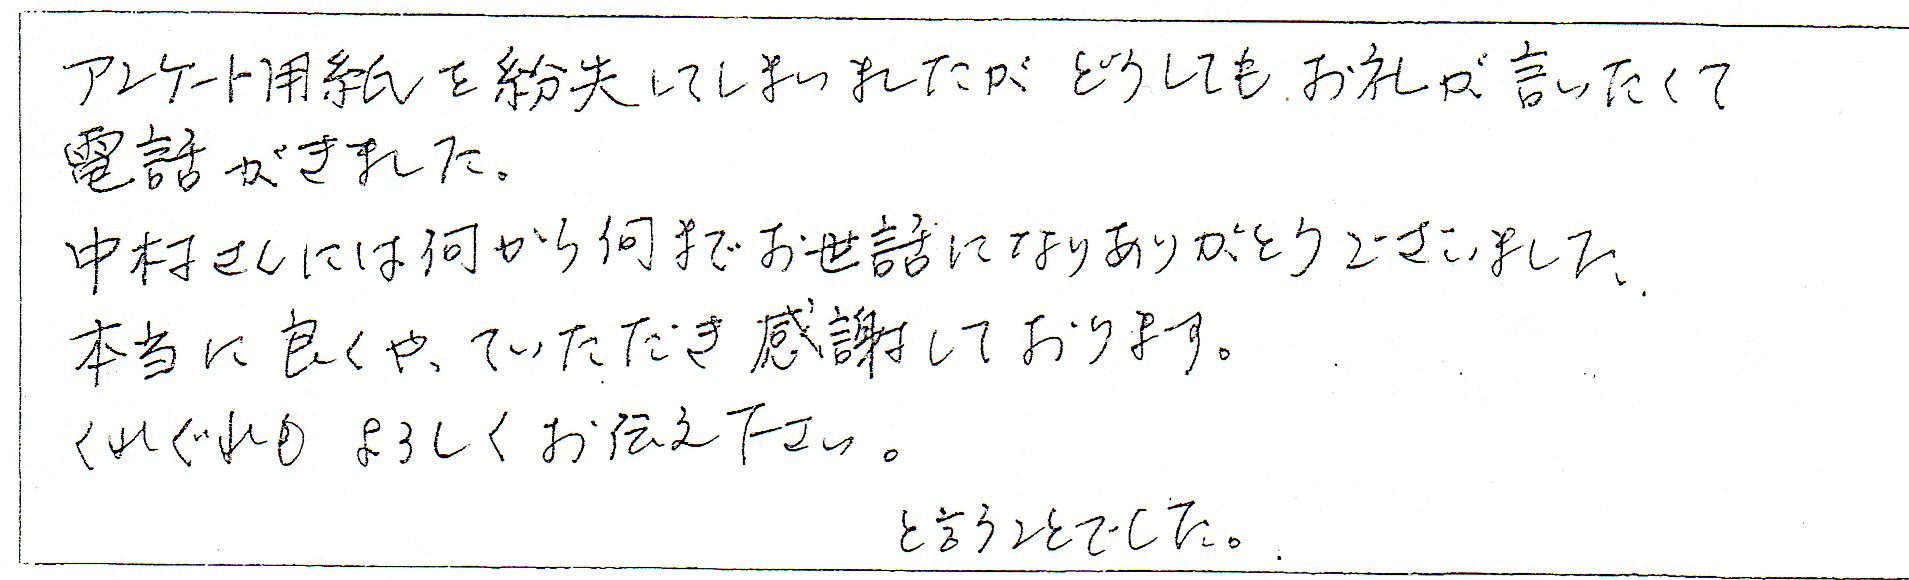 アンケート用紙を紛失してしまいましたが どうしても お礼が 言いたくて
電話がきました。
中村さんには何から何までお世話になりありがとうございました。
本当に良くやっていただき感謝しております。
くれぐれも よろしくお伝え下さい。
と言うことでした。